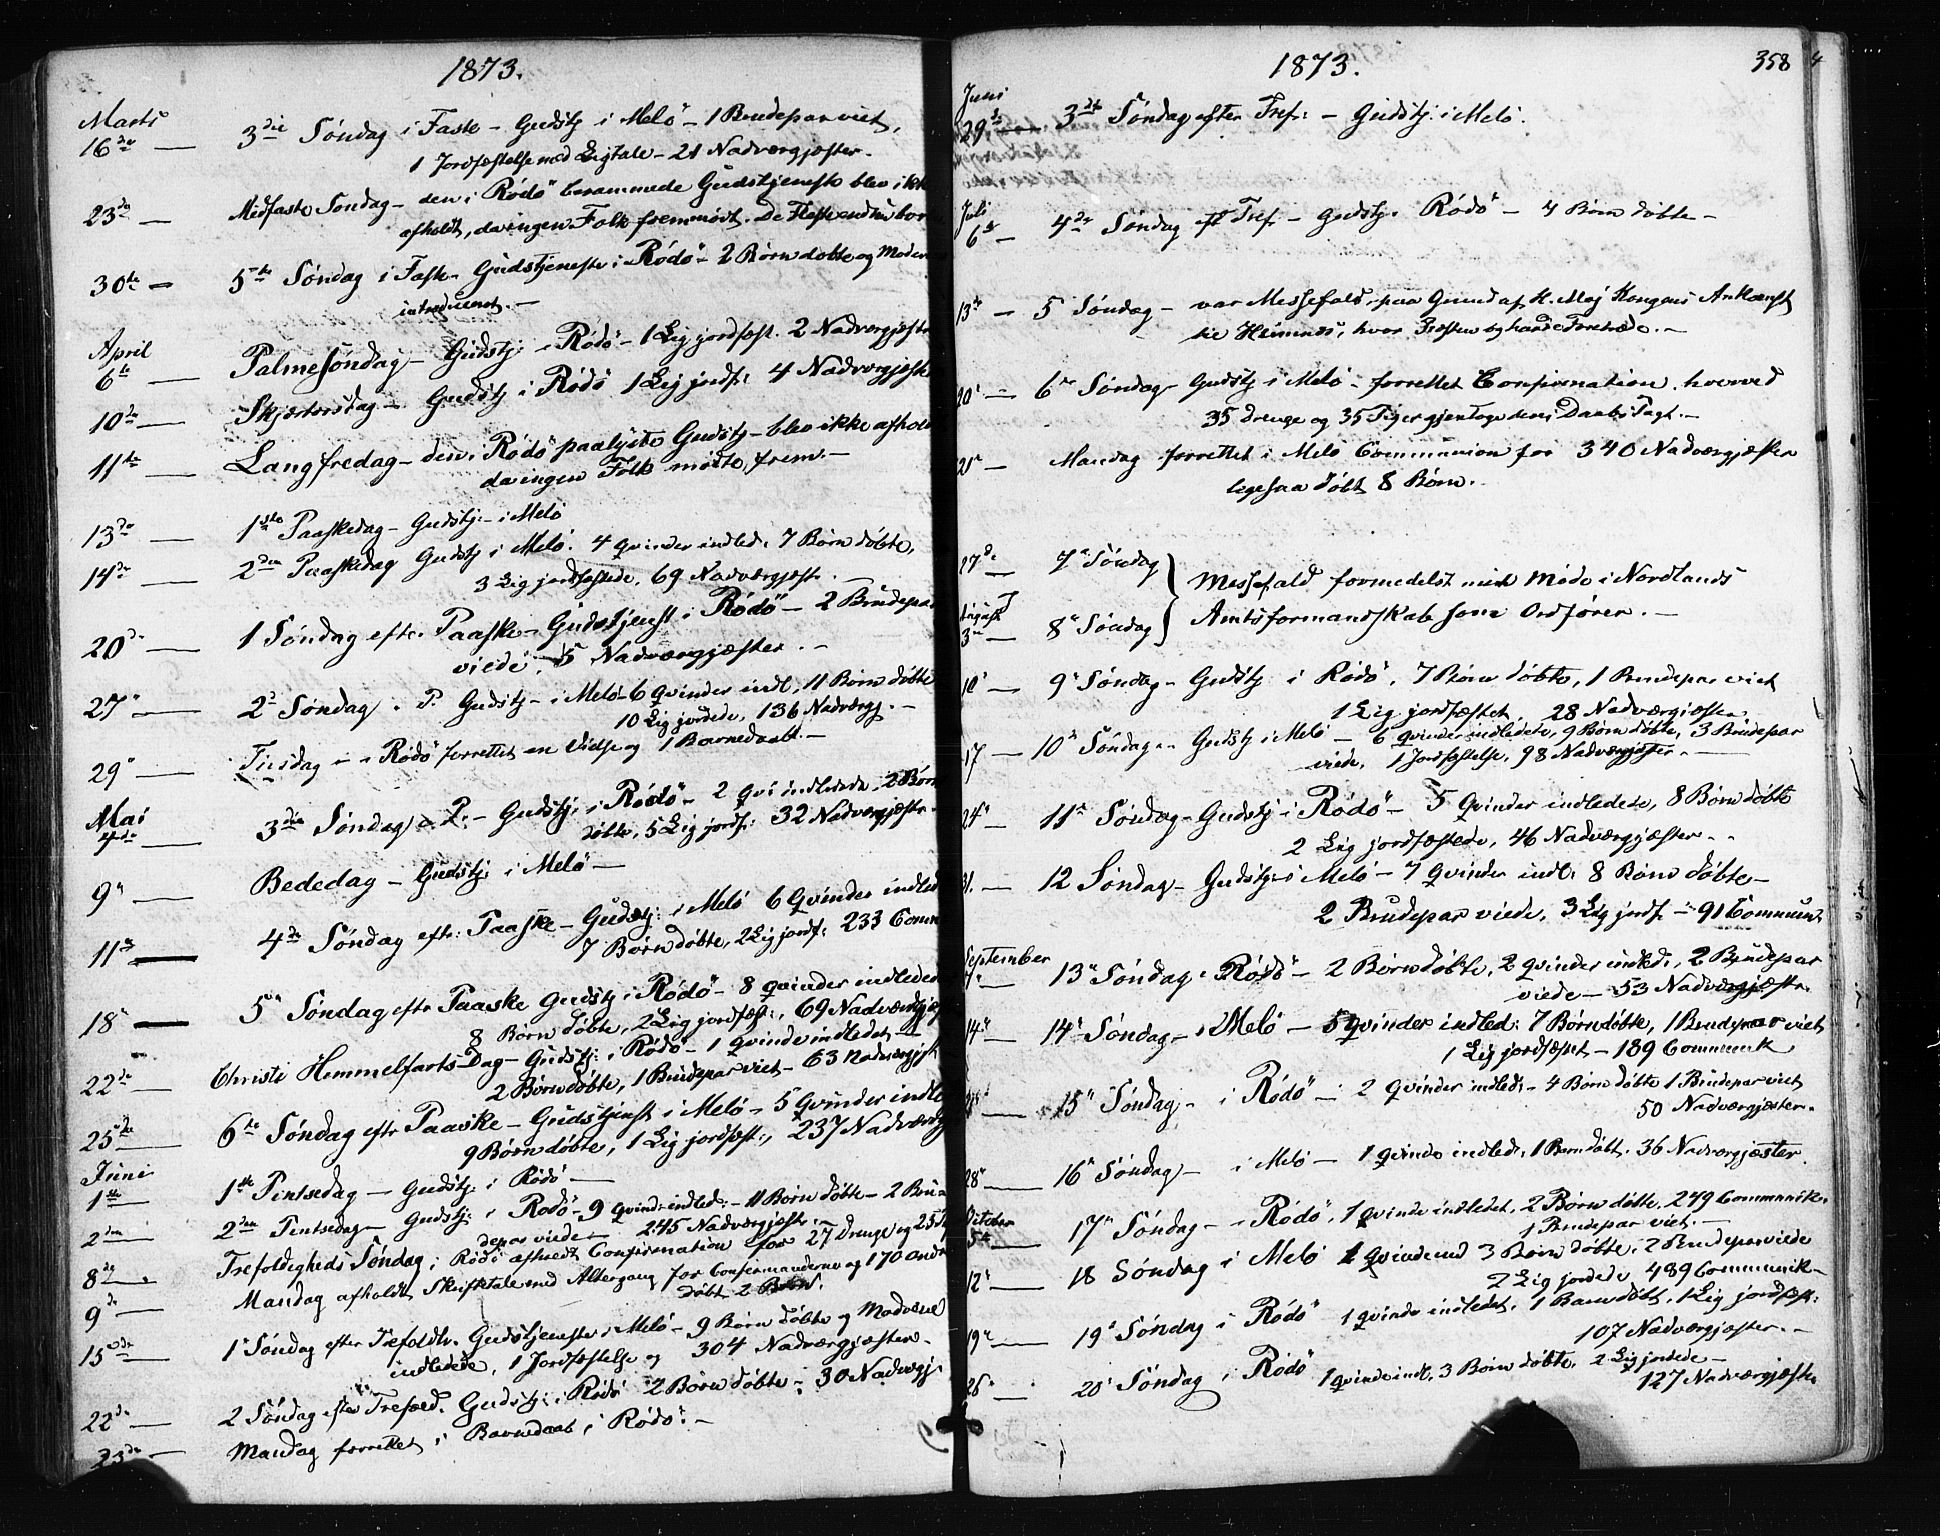 1873.
Marts
16de — 3die Søndag i Faste – Gudstj. i Melö – 1 Brudepar viet,
1 Jordfæstelse med Ligtale – 21 Nadvergjæster.
23de — Midfaste Søndag – den i Rödö berammede Gudstjeneste blev ikke
afholdt, da ingen Folk fremmödt. De Fleste
30te — 5te Søndag i Faste – Gudstjeneste i Rödö – 2 Børn døbte og Mødr
introduceret. –
April
6te — Palmesøndag – Gudstj: i Rödö – 1 Lig jordfæst. 2 Nadvergjæster
10de — Skjærtorsdag – Gudstj i Rödö 1 Lig jordf: 4 Nadvergjæste
11te — Langfredag – den i Rödö paalyste Gudstj – blev ikke afhold
da ingen Folk mødte frem. –
13de — 1ste Paaskedag – Gudstj: – i Melö
14de — 2den Paaskedag Gudstj i Melö. 4 Qvinder indled: 7 Børn døbte,
3 Lig jordfæstede, 69 Nadvergjæstr.
20de — 1 Søndag efter Paaske – Gudstjenst i Rödö – 2 Brudepar
viede. 5 Nadvergjæster. –
27de — 2d Søndag e. P. Gudstj – i Melö – 6 Qvinder indl, 11 Børn døbte
10 Lig jordede, 136 Nadvergj. –
29de — Tirsdag – i Rödö forrettet en Vielse og 1 Barnedaab. –
Mai
4de — 3die Søndag e P. – Gudstj: i Rödö – 2 Qvi indledede, 2 Børn
døbte, 5 Lig jordf: 32 Nadvergjæstr.
9de — Bededag – Gudstj: i Melö –
11te — 4de Søndag eftr: Paaske – Gudstj: i Melö 6 Qvinder indled
7 Børn døbte, 2 Lig jordf: 233 Comm
18de — 5te Søndag eftr Paaske Gudstj i Rödö – 8 Qvinder indleded
8 Børn døbte, 2 Lig jordfæst:, 69 Nadvergjæ
22de — Christi Himmelfarts-Dag – Gudstj: i Rödö – 1 Qvinde indledet –
2 Børn døbte, 1 Brudepar viet – 63 Nadvergjst
25de — 6te Søndag eftr Paaske – Gudstjenst i Melö – 5 Qvinder indle
9 Børn døbte, 1 Lig jordfæst:, 237 Nadverg
Juni
1ste — 1ste Pintsedag – Gudstj: i Rödö –
2den — 2den Pintsedag – Gudstj: i Rödö – 9 Qvind: indled: – 11 Børn døbte – 2 Bru-
depar viede – 245 Nadvergjæstr. –
8de — Trefoldigheds Søndag i Rödö afholdt Confirmation for 27 Drenge og 25 P
9de — Mandag afholdt Skriftetale med Altergang for Confirmanderne og 170 andre
døbt 2 Børn.
15de — 1 Søndag efter Trefoldh. Gudstjeneste i Melö – 9 Børn døbte og Mødrene
indledede, 1 Jordfæstelse og 304 Nadvergjæster –
22de — 2 Søndag efter Trefold. Gudstj: i Rödö 2 Børn døbte – 30 Nadvergj.
23de — Mandag forrettet 1 Barnedaab i Rödö. –
1873.
358
4
Juni
29de — 3die Søndag efter Tref: – Gudstj: i Melö.
Juli
6te — 4de Søndag eft Tref – Gudstj. Rödö – 4 Børn døbte –
13de — 5 Søndag – var Messefald paa Grund af H. Maj Kongens Ankomst
til Hemnes, hvor Præsten havde Foretræde. –
20de — 6te Søndag Gudstj i Melö – forrettet Confirmation hvorved
35 Drenge og 35 Piger gjentoge deres Daabs Pagt. –
21de — Mandag forrettet i Melö Communion for 340 Nadvergjæster
ligesaa døbt 8 Børn.
27de — 7de Søndag } Messefald formedelst mit Møde i Nordlands
August
3die — 8de Søndag } Amtsformandskab som Ordfører. –
10de — 9de Søndag – Gudstj i Rödö, 7 Børn døbte, 1 Brudepar viet
1 Lig jordfæstet, 28 Nadvergjæster.
17 — 10de Søndag – Gudstj i Melö – 6 Qvinder indledede, 9 Børn døbte, 3 Brudepar
viede, 1 Jordfæstelse, 98 Nadvergjæster. –
24de — 11te Søndag – Gudstj i Rödö – 5 Qvinder indledede, 8 Børn døbte
2 Lig jordfæstede, 46 Nadvergjæster. –
31. — 12 Søndag – Gudstj: i Melö – 7 Qvinder indl: 8 Børn døbte –
2 Brudepar viede, 3 Lig jordf. – 91 Commun
September
7de — 13de Søndag i Rödö – 2 Børn døbte, 2 Qvinder indled:, 2 Brudepar
viede – 53 Nadvergjæstr.
14de — 14de Søndag – i Melö – 5 Qvinder indled: 7 Børn døbte, 1 Brudepar viet
1 Lig jordfæstet – 189 Communik
— 15de Søndag – i Rödö – 2 Qvinder indled: – 4 Børn døbte 1 Brudepar viet
50 Nadvergjæster.
28de — 16de Søndag – i Melö – 1 Qvinde indled:, 1 Barn døbt, 36 Nadvergjæster.
October
5te — 17de Søndag – i Rödö, 1 Qvinde indledet, 2 Børn døbte, 249 Communik.
1 Brudepar viet. –
12te — 18 Søndag i Melö 1 Qvinde ind 3 Børn døbte, 2 Brudepar viede
2 Lig jordede 489 Communik –
19de — 19de Søndag i Rödö 1 Qvinde indledet, 1 Barn døbt, 1 Lig jordfæst:
107 Nadvergjæster. –
26de — 20de Søndag i Rödö 1 Qvinde indl, 3 Børn døbte, 2 Lig jordede –
127 Nadvergjæstr